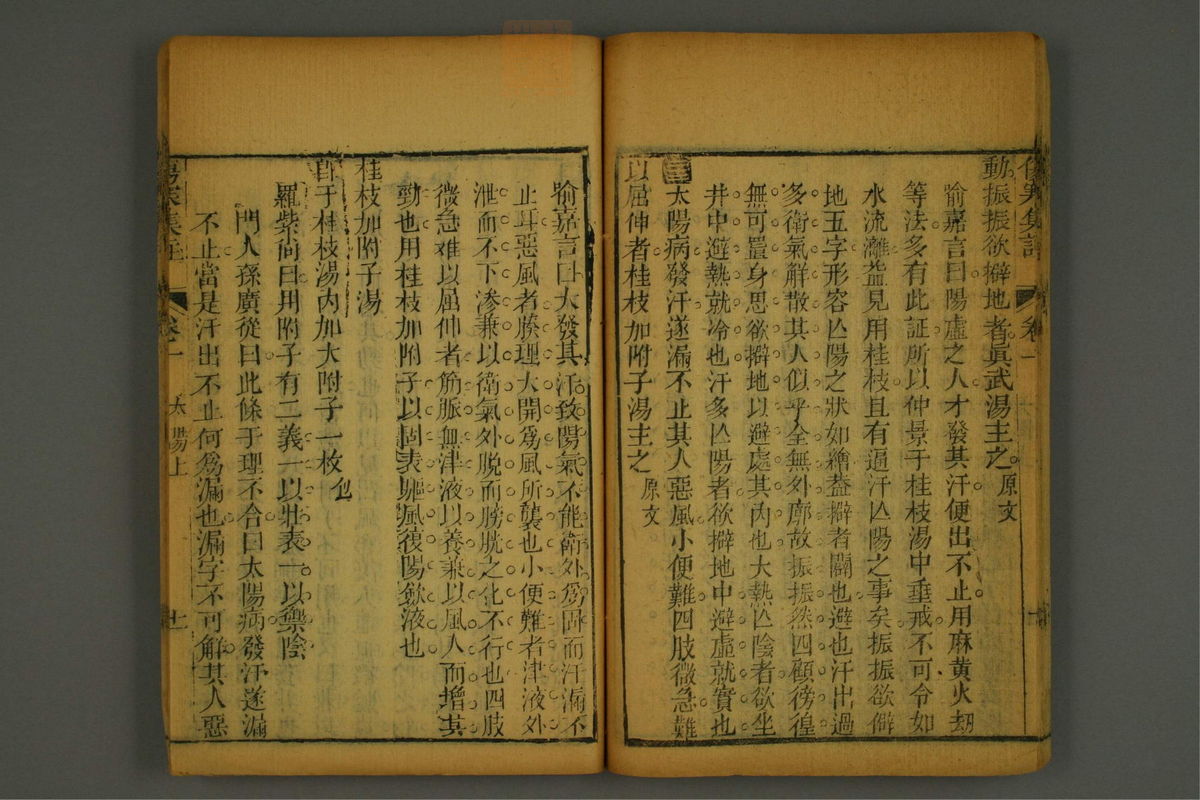 傷寒集註 卷一 十
動振振欲擗地者眞武湯主之原文
喻嘉言曰陽虛之人才發其汗便出不止用麻黄火刼
等法多有此証所以仲景于桂枝湯中垂戒不可令如
水流漓葢見用桂枝且有逼汗亾陽之事矣振振欲僻
地五字形容亾陽之狀如繪葢擗者闢也避也汗出過
多衛氣解散其人似乎全無外廓故振振然四顧徬徨
無可置身思欲擗地以避處其内也大熱亾陰者欲坐
井中避熱就冷也汗多亾陽者欲擗地中避虛就實也
太陽病發汗遂漏不止其人惡風小便難四肢微急難
以屈伸者桂枝加附子湯主之原文
喻嘉言曰大發其汗致陽氣不能衛外爲固而汗漏不
止耳惡風者腠理大開爲風所襲也小便難者津液外
泄而不下渗兼以衛氣外脱而膀胱之化不行也四肢
微急难以屈伸者筋脈無津液以養兼以風人而增其
勁也用桂枝加附子以固表驅風復陽歛液也
桂枝加附子湯
卽于桂枝湯内加大附子一枚
羅紫尚曰用附子有二義一以壯表一以禦陰
門人孫廣從曰此條于理不合曰太陽病發汗遂漏
不止當是汗出不止何爲漏也漏字不可解其人惡
傷寒集註 卷一 太陽上 十一